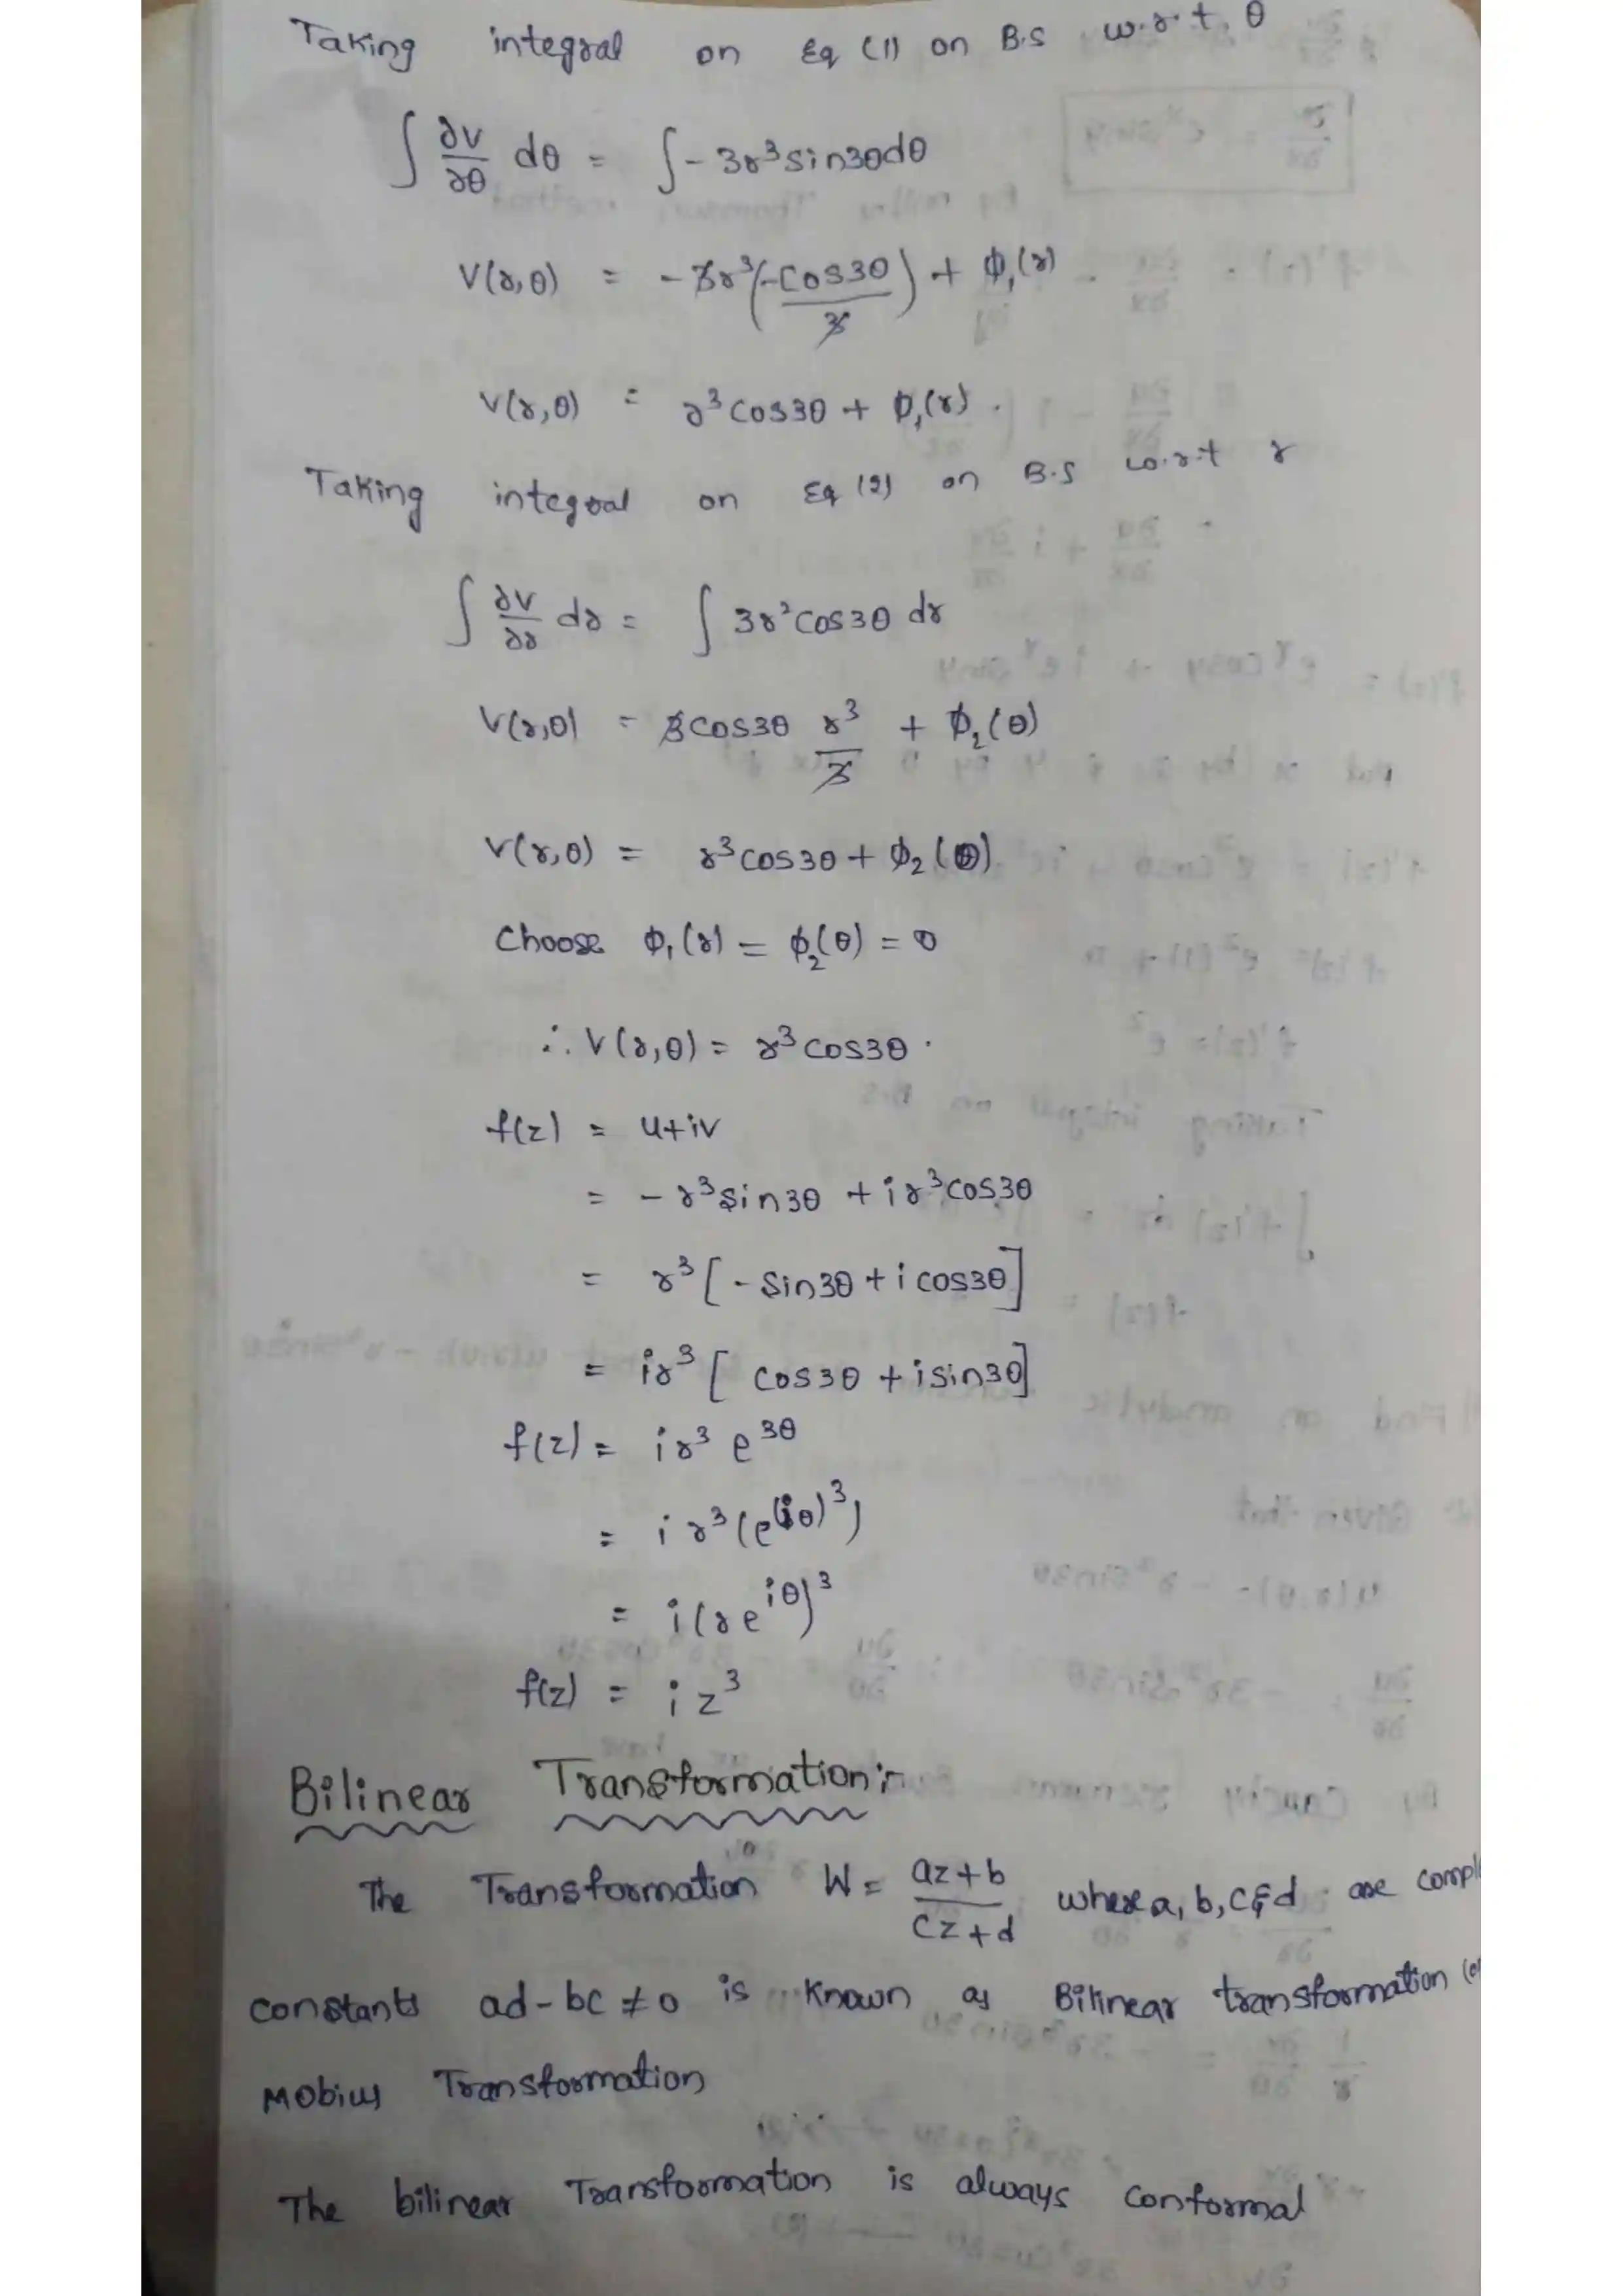 Taking integral on Eq (1) on B.S w.r.t. θ
∫ ∂v/∂θ dθ = ∫ - 3r³sin3θdθ
V(r,θ) = - 3r³(-cos3θ/3) + ϕ₁(r)
V(r,θ) = r³cos3θ + ϕ₁(r).
Taking integral on Eq (2) on B.S w.r.t r
∫ ∂v/∂r dr = ∫ 3r²cos3θ dr
V(r,θ) = 3cos3θ r³/3 + ϕ₂(θ)
V(r,θ) = r³cos3θ + ϕ₂(θ)
Choose ϕ₁(r) = ϕ₂(θ) = 0
∴ V(r,θ) = r³cos3θ.
f(z) = u+iv
= - r³sin3θ + ir³cos3θ
= r³[-sin3θ + i cos3θ]
= ir³[cos3θ + isin3θ]
f(z) = ir³ e³θ
= i r³(e(iθ)³)
= i(re^iθ)³
f(z) = i z³
Bilinear Transformation:-
The Transformation W = az+b/cz+d where a, b, c & d are compl
constants ad-bc ≠ 0 is known as Bilinear transformation (o
Mobius Transformation
The bilinear Transformation is always conformal